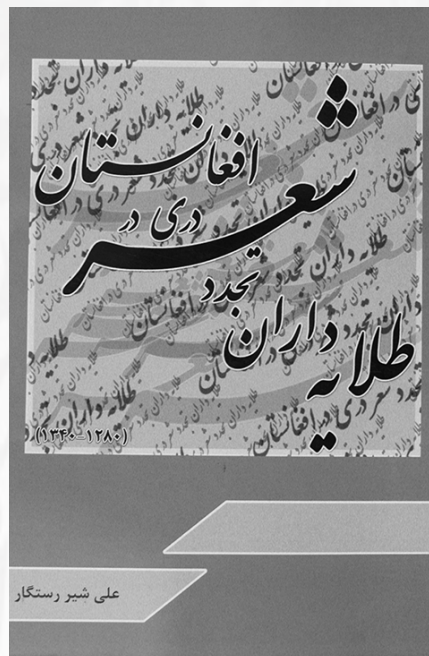 طلایه داران
تجدد
شعر
دری در
افغانستان
(۱۲۸۰-۱۳۴۰)
علی شیر رستگار